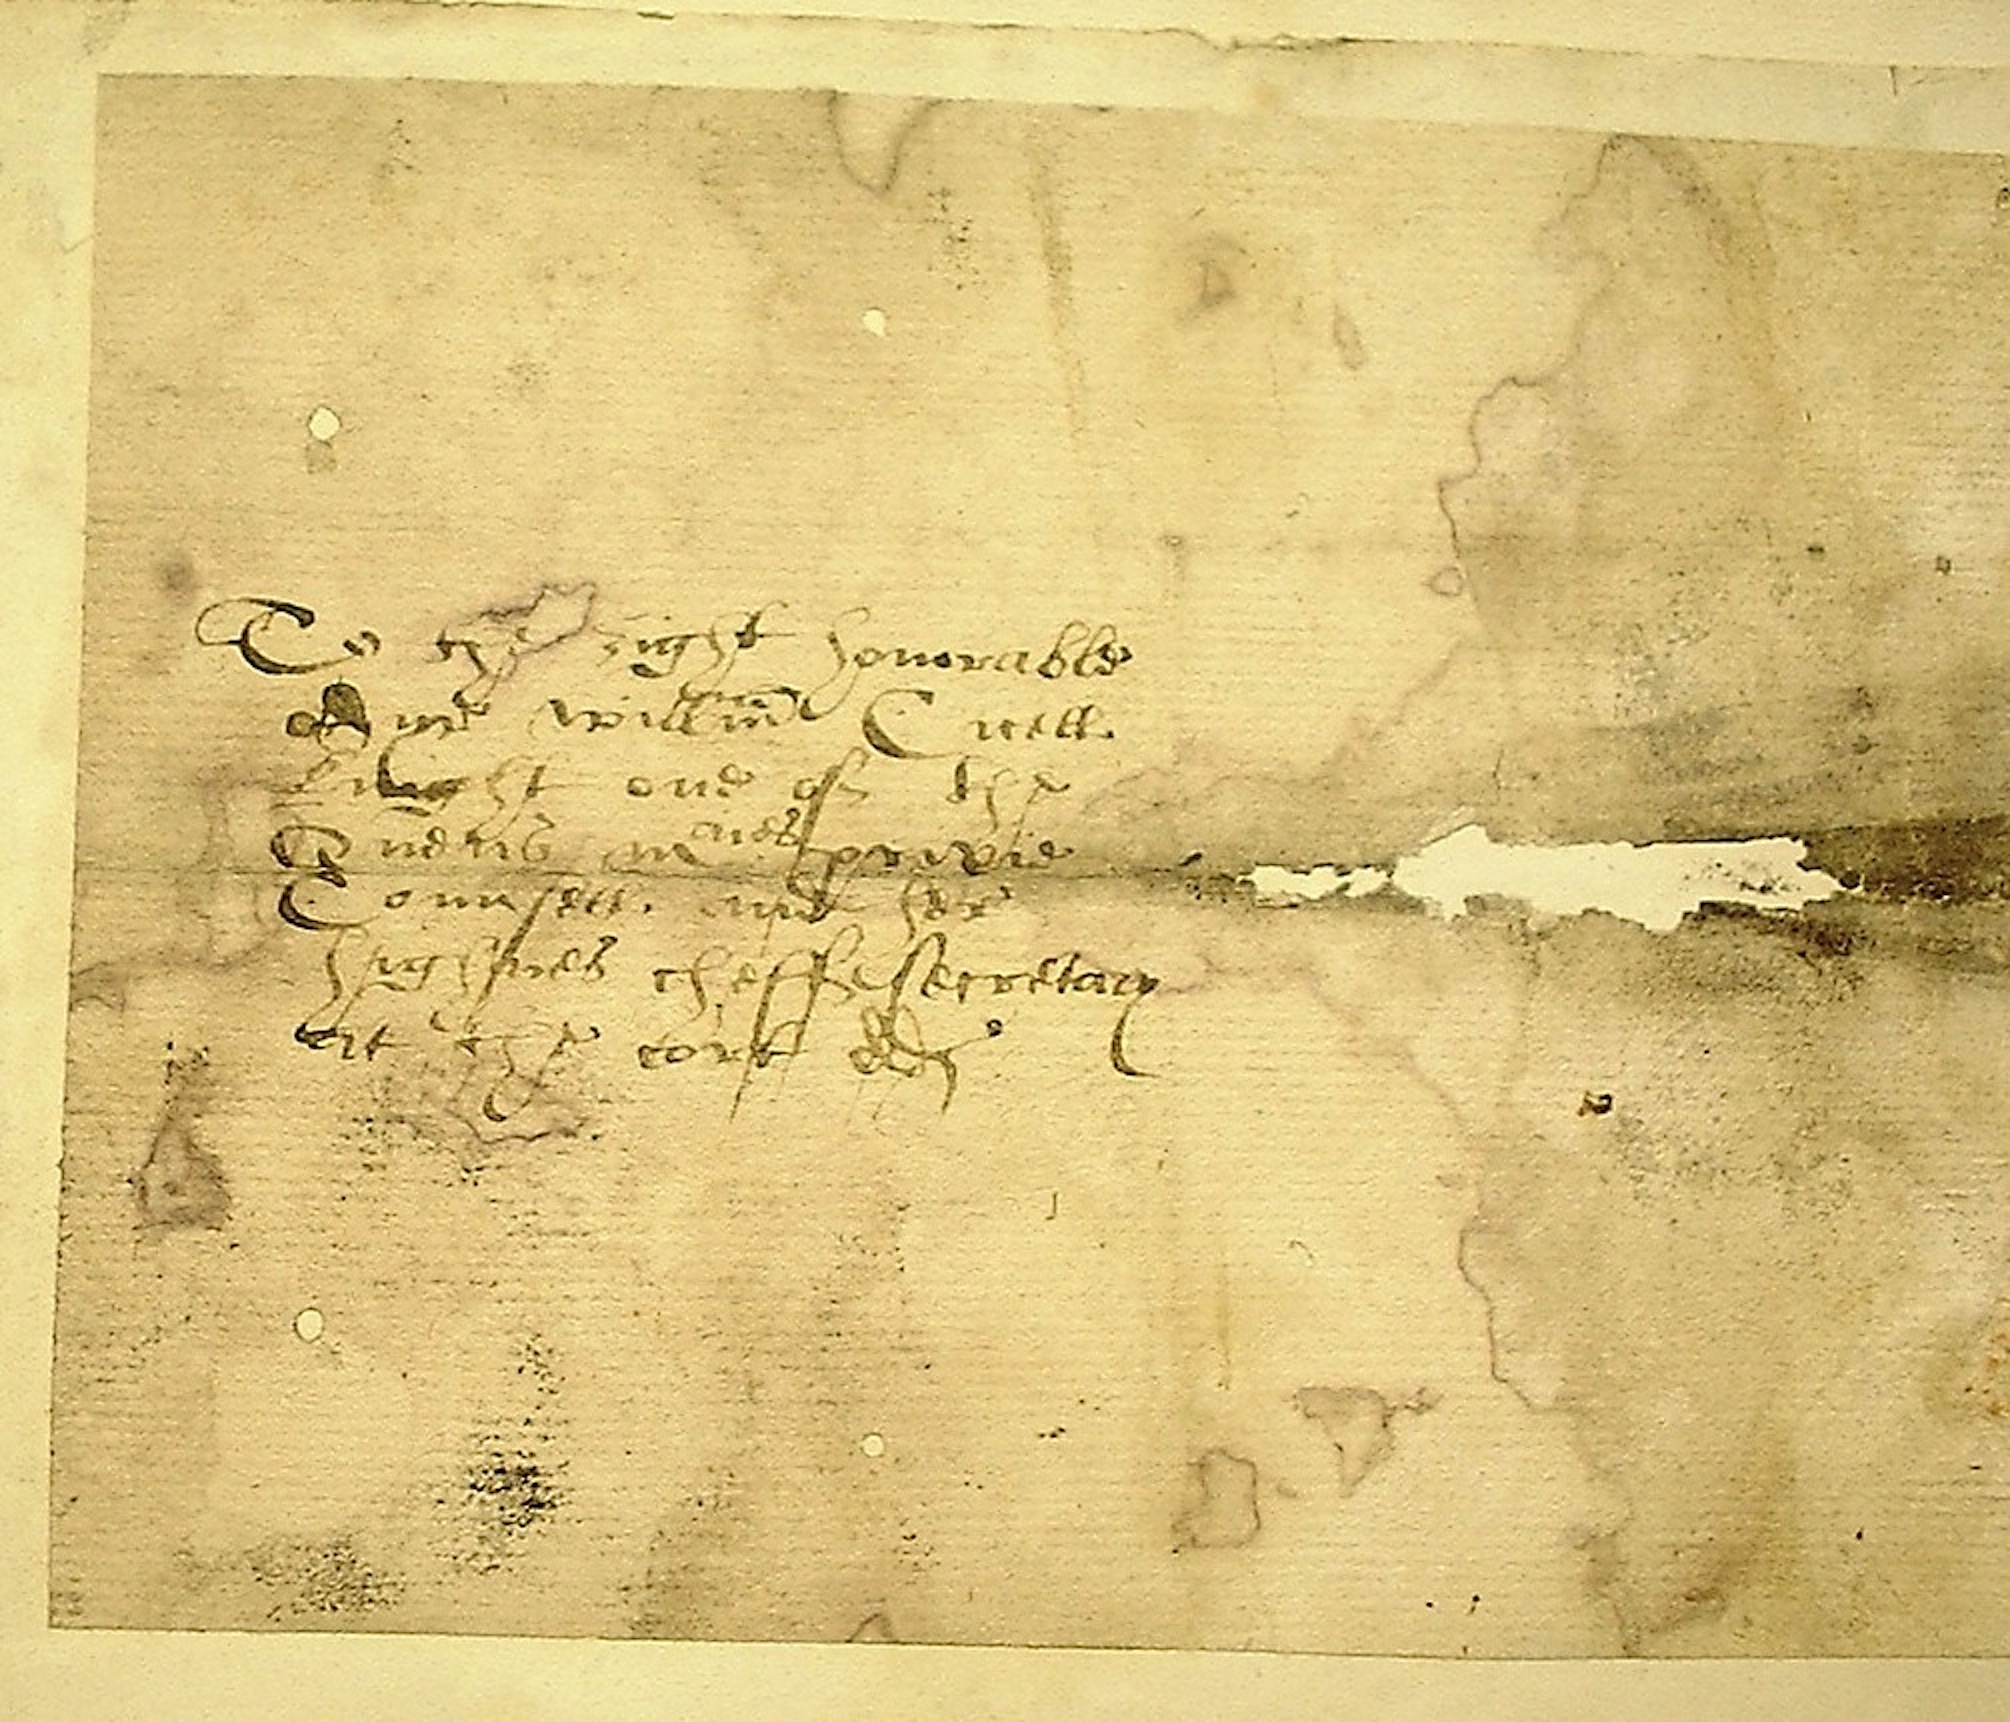 To the right honorable
Syr willm̄ Cicell
knight one of the
Quenes maies privie
Counsell. and her
highnes cheffe secretary
at the cort dd